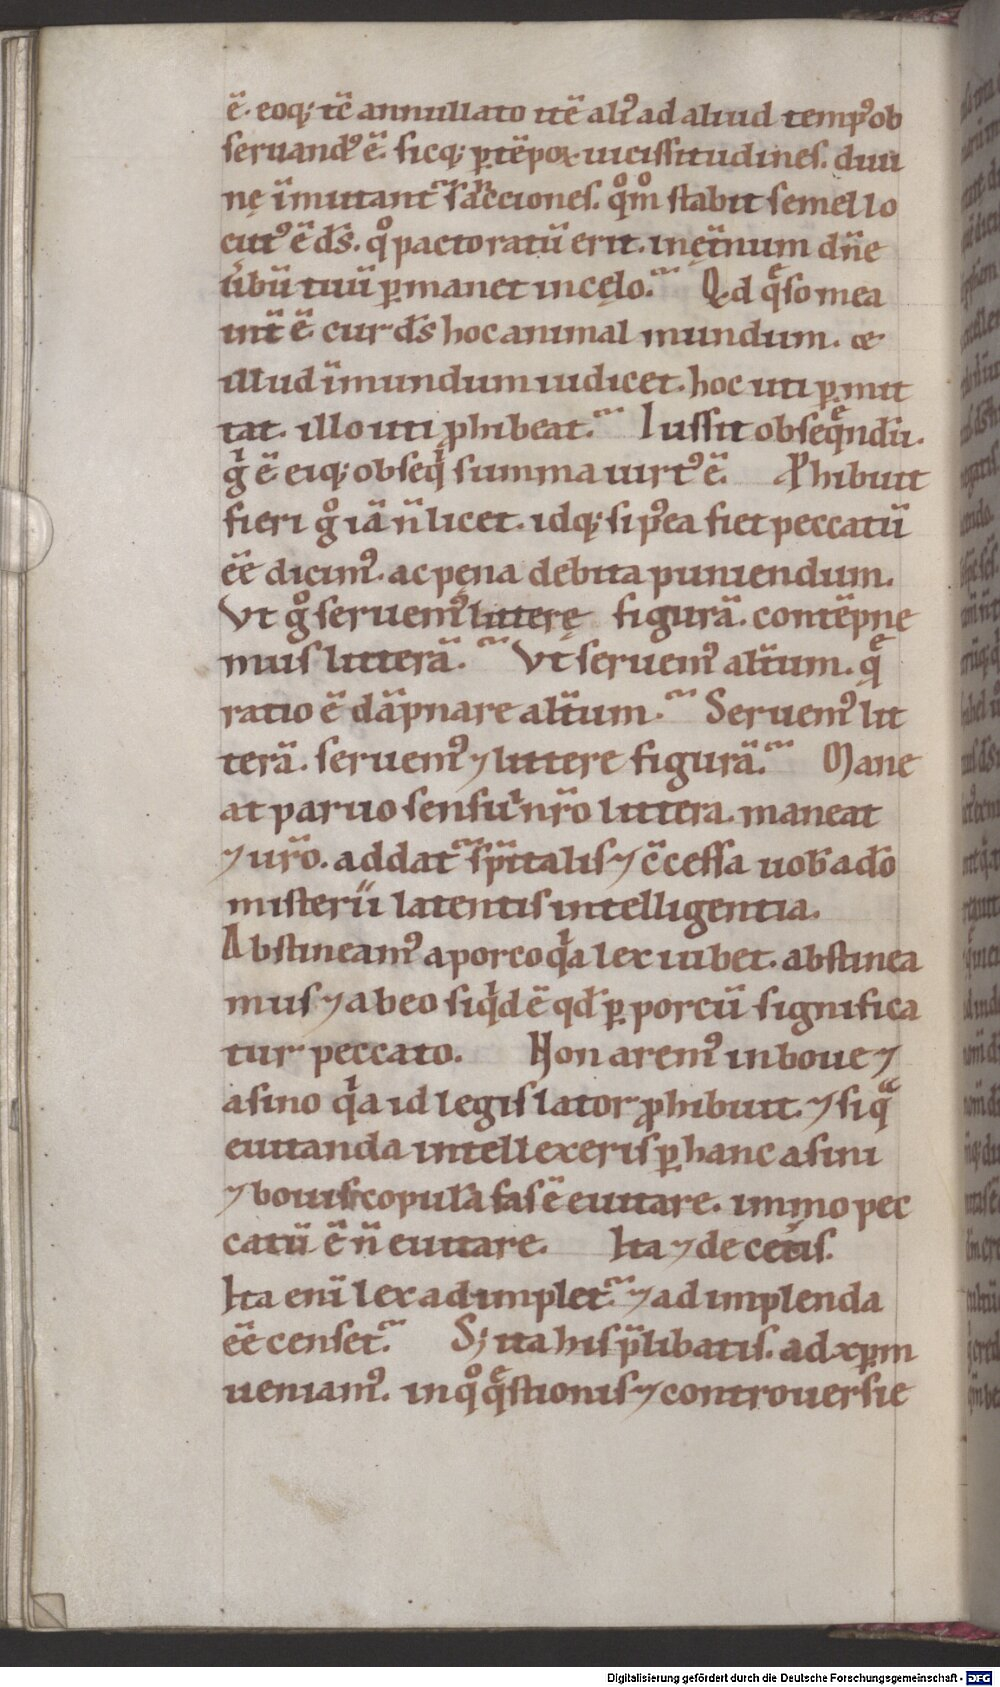 ē. eoq; tc̄ annullato itē alt᷒ ad aliud temp᷒ ob
seruand᷒ ē. sicq; ꝑ tēpoꝝ uicissitudines. diui
nę īmutant᷑ sācciones. qͦm̊ stabit semel lo
cut᷒ ē ds̄. qͦ pacto ratū erit. in ęt̄num dn̄e
ūbū tuū ꝑmanet in cęlo.᷑ Q͛d q̄so mea
int̄ ē cur ds̄ hoc animal mundum. ⁊
illud īmundum iudicet. hoc uti ꝑmit
tat. illo uti ꝓhibeat.᷑ Iussit obseq̄ndū.
gͥ ē eiq; obseqͥ summa uirt᷒ ē. Ꝓhibuit
fieri gͦ iā n̄ licet. idq; si p᷒ea fiet peccatū
ēē dicim᷒. ac pęna debita puniendum.
Vt gͦ seruem᷒ litterę figurā. contēpne
mus litterā.᷑ Vt seruem᷒ alt̄um. q̄
ratio ē dāpnare alt̄um.᷑ Seruem᷒ lit
terā. seruem᷒ ⁊ littere figurā.᷑ Mane
at paruo sensui nr̄o littera. maneat
⁊ ur̄o. addat᷑ sp̄italis ⁊ c̄cessa uob̄ a dō
misterii latentis intelligentia.
Abstineam᷒ a porco qͥa lex iubet. abstinea
mus ⁊ ab eo siqͥdē qd̄ ꝑ porcū significa
tur peccato. Non arem᷒ in boue ⁊
asino qͥa id legislator ꝓhibuit. ⁊ si qͣ
euitanda intellexeris ꝑ hanc asini
⁊ bouis copulā fas ē euitare. immo pec
catū ē n̄ euitare. Ita ⁊ de cet̄is.
Ita enī lex adimplet᷑. ⁊ adimplenda
ēē censet.᷑ S; ita his p̄libatis. ad xꝑm
ueniam᷒. in qͦ q̄stionis ⁊ controuersie
Digitalisierung gefördert durch die Deutsche Forschungsgemeinschaft - DFG